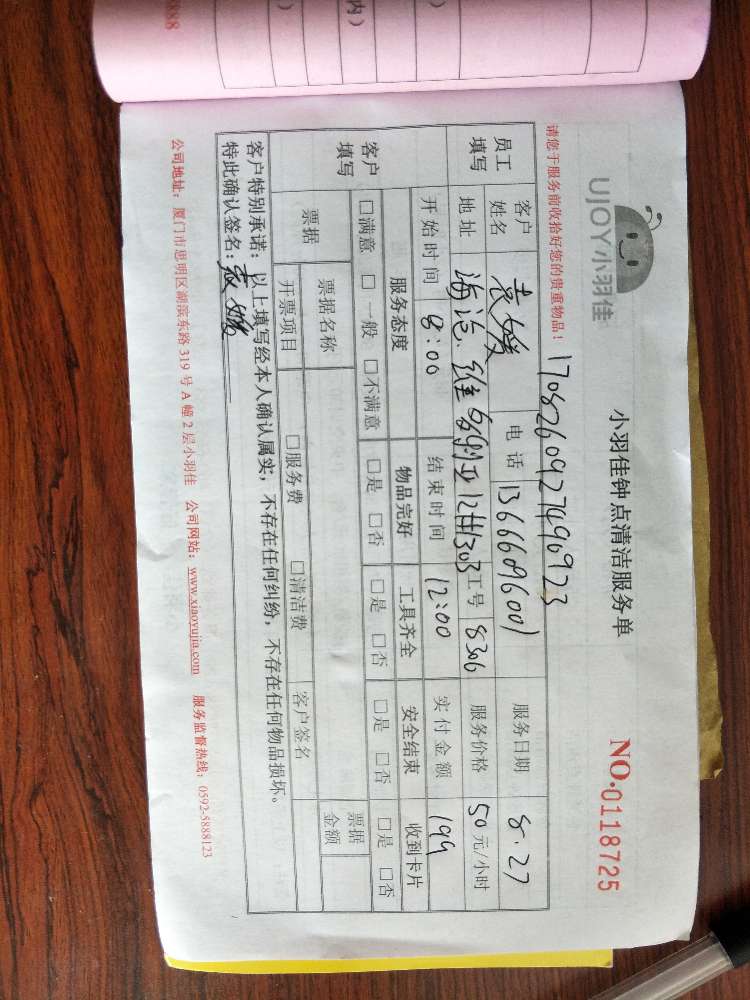 UJOY小羽佳
小羽佳钟点清洁服务单
NO.0118725
请您于服务前收拾好您的贵重物品！
1708260927490923
员工填写
客户姓名 袁媛 电话 13666096001 服务日期 8.27
地址 海沧 维多利亚12#1303 工号 8306 服务价格 50元/小时
开始时间 8:00 结束时间 12:00 实付金额 199
客户填写
服务态度 物品完好 工具齐全 安全结束 收到卡片
□满意 □一般 □不满意 □是 □否 □是 □否 □是 □否 □是 □否
票据 票据名称 票据金额
开票项目 □服务费 □清洁费 客户签名
客户特别承诺：以上填写经本人确认属实，不存在任何纠纷，不存在任何物品损坏。
特此确认签名：袁媛
公司地址：厦门市思明区湖滨东路319号A幢2层小羽佳 公司网站：www.xiaoyujia.com 服务监督热线：0592-5888123
内）
）
888